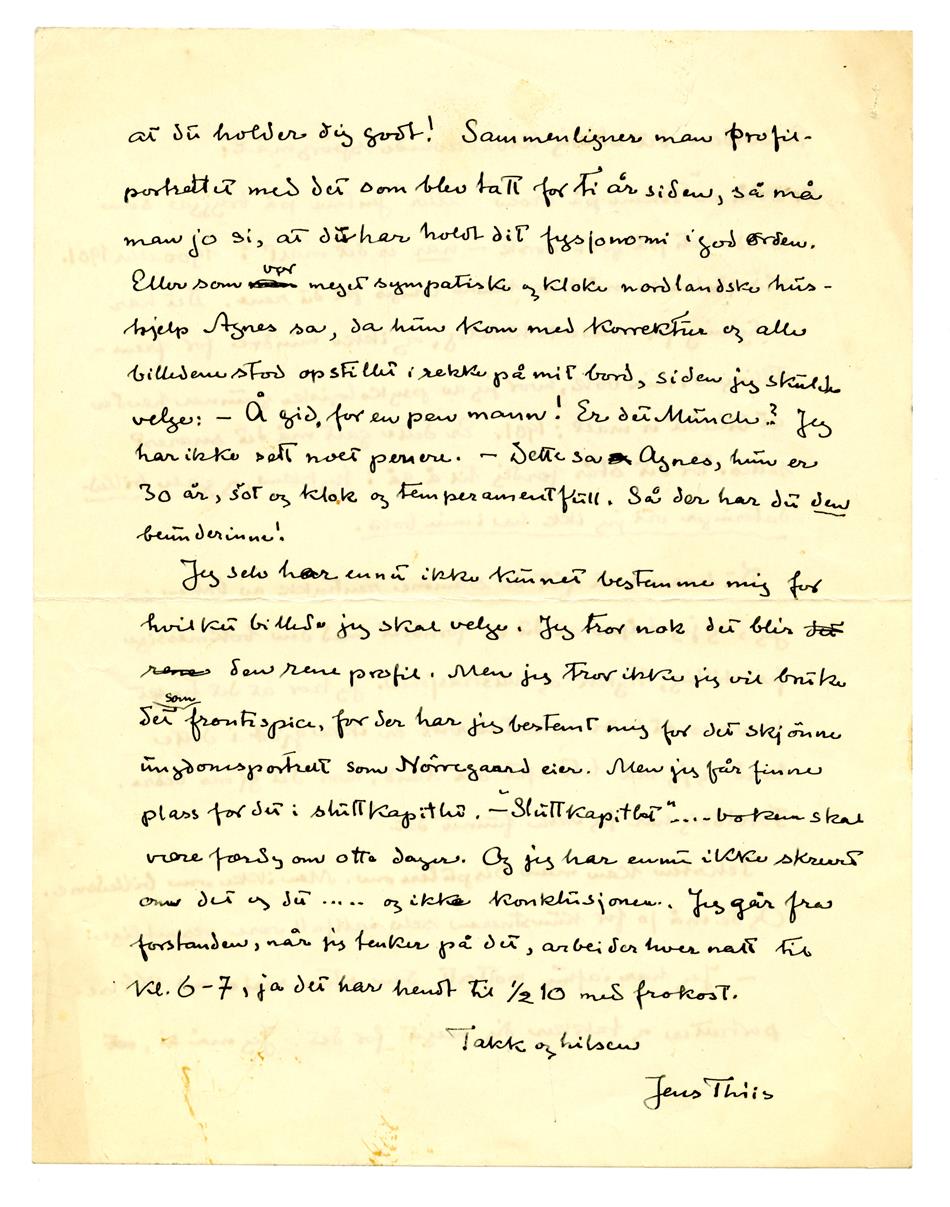 at du holder dig godt! Sammenligner man profil-
portrettet med det som blev tatt for ti år siden, så må
man jo si, at du har holdt dit fysjonomi i god orden.
Eller som vor meget sympatiske og kloke nordlandske hus-
hjelp Agnes sa, da hun kom med korrektur og alle
billedene stod opstillet i rekke på mit bord, siden jeg skulde
velge: – Å gid, for en pen mann! Er det Munch? Jeg
har ikke sett noet penere. – Dette sa Agnes, hun er
30 år, söt og klok og temperamentfull. Så der har du den
beunderinne!
Jeg selv har ennu ikke kunnet bestemme mig for
hvilket billede jeg skal velge. Jeg tror nok det blir det
rene den rene profil. Men jeg tror ikke jeg vil bruke
det som frontispice, for der har jeg bestemt mig for det skjönne
ungdomsportrett som Nörregaard eier. Men jeg får finne
plass for det i sluttkapitlet. – "Sluttkapitlet" .... boken skal
være færdig om otte dager. Og jeg har ennu ikke skrevet
om det og det ..... og ikke konklusjonen. Jeg går fra
forstanden, når jeg tenker på det, arbeider hver natt til
kl. 6-7, ja det har hendt til ½ 10 med frokost.
Takk og hilsen
Jens Thiis